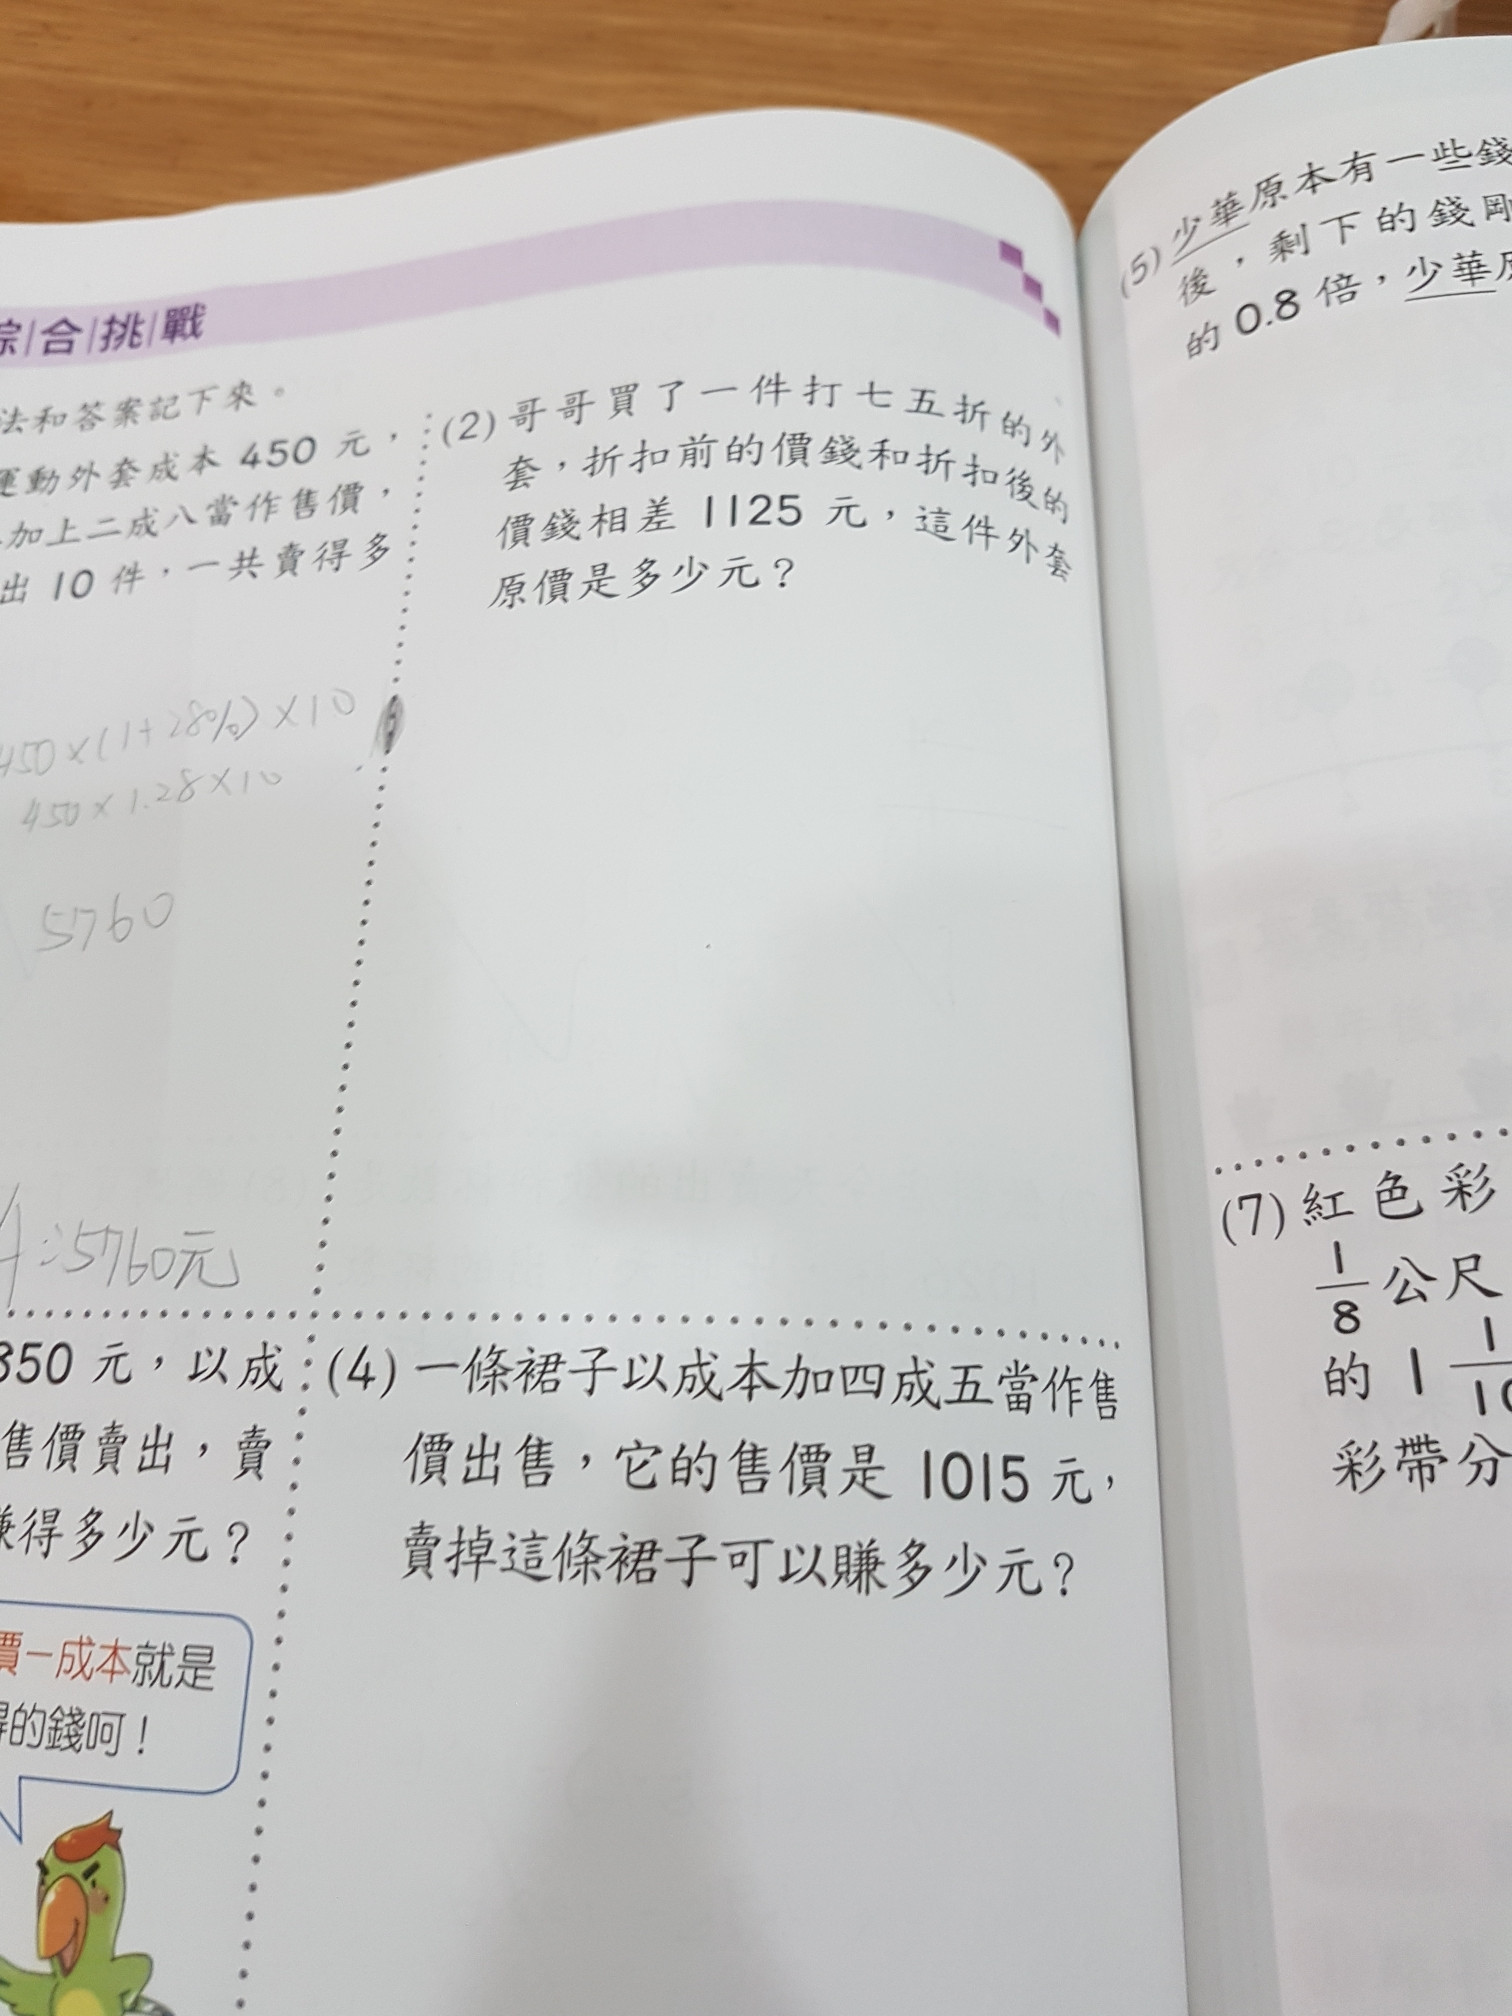 綜合挑戰
法和答案記下來。
運動外套成本 450 元，
加上二成八當作售價，
出 10 件，一共賣得多
450×(1+28%)×10
450×1.28×10
5760
A:5760元
(2) 哥哥買了一件打七五折的外
套，折扣前的價錢和折扣後的
價錢相差 1125 元，這件外套
原價是多少元？
350 元，以成
售價賣出，賣
賺得多少元？
價－成本就是
得的錢呵！
(4) 一條裙子以成本加四成五當作售
價出售，它的售價是 1015 元，
賣掉這條裙子可以賺多少元？
(5) 少華原本有一些錢
後，剩下的錢剛
的 0.8 倍，少華原
(7) 紅色彩
1/8 公尺
的 1 1/10
彩帶分